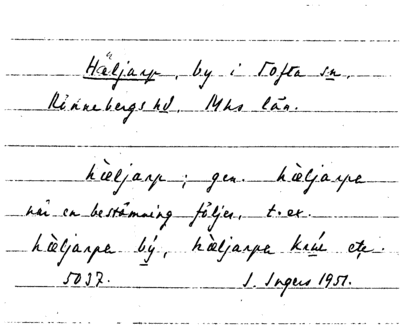 Häljarp, by i Tofta sn,
Rönnebergs hd, Mhs län.
hæljarp; gen. hæljarpa
när en bestämning följer, t. ex.
hæljarpa bý, hæljarpa etc.
5037. I. Ingers 1951.